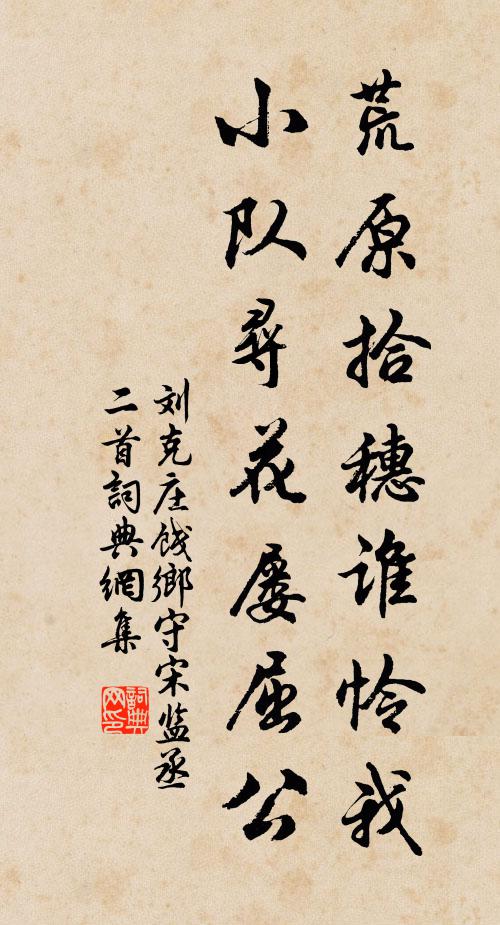 荒原拾穗谁怜我
小队尋花屡屈公
刘克庄饯鄉守宋监丞
二首詞典網集
詞典
网印